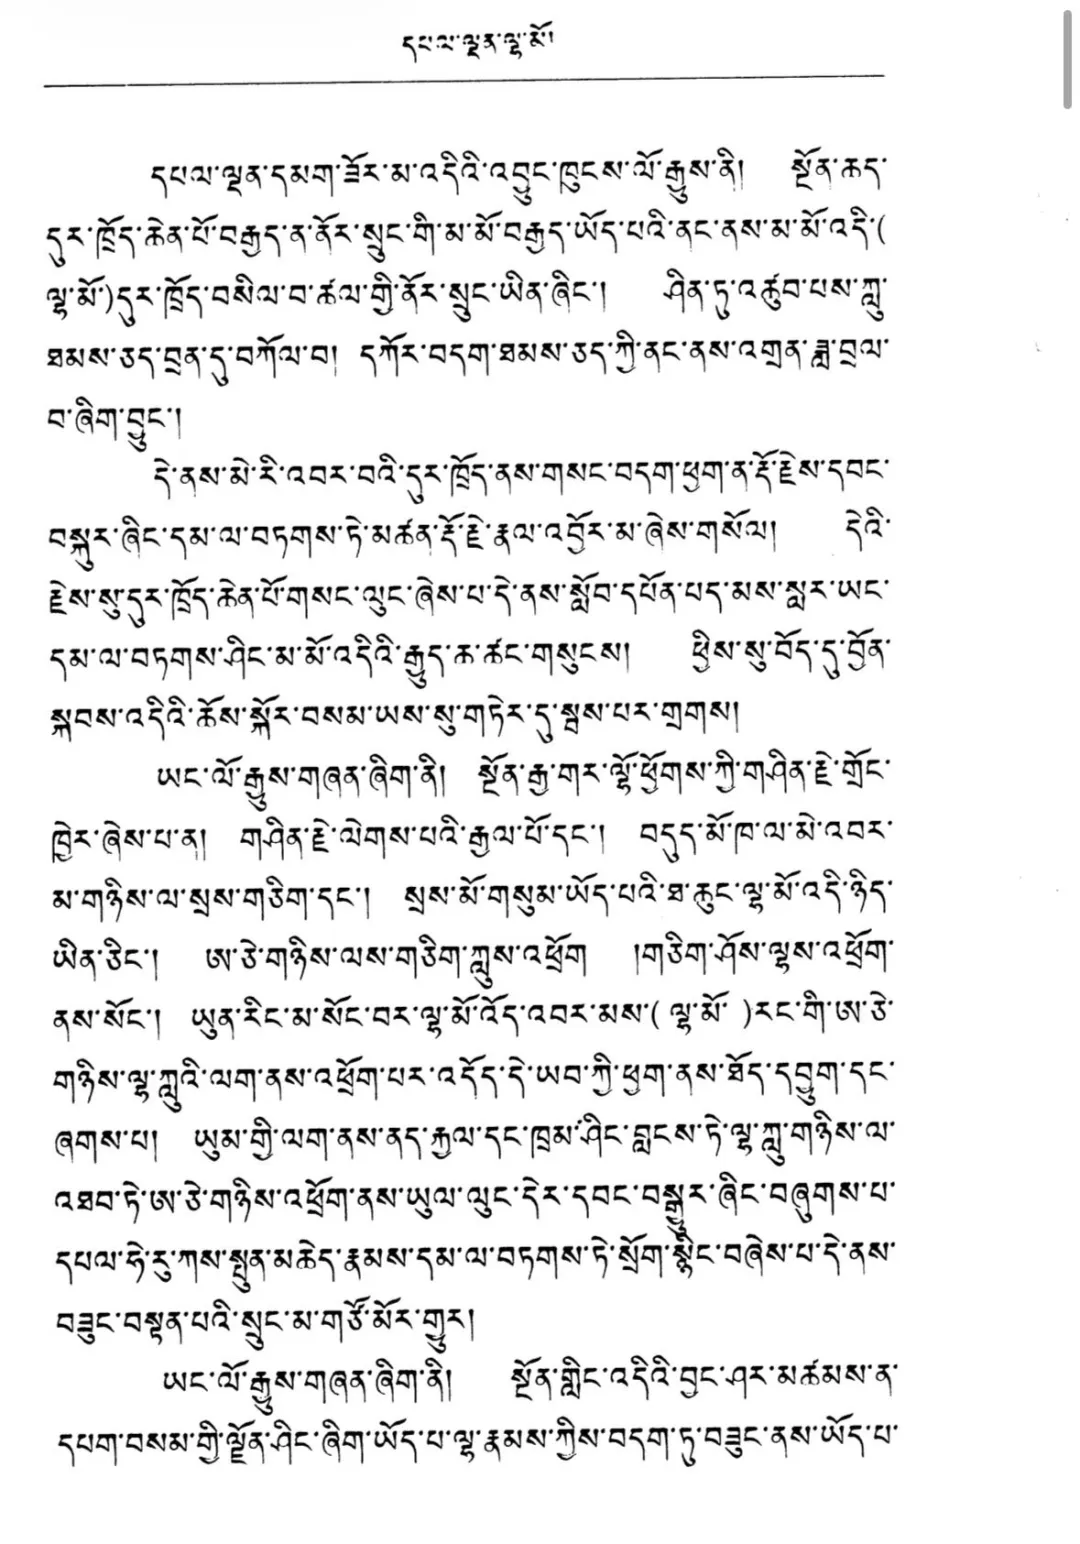 དཔལ་ལྡན་ལྷ་མོ།
དཔལ་ལྡན་དམག་ཟོར་མ་འདིའི་འབྱུང་ཁུངས་ལོ་རྒྱུས་ནི། སྔོན་ཆད་
དུར་ཁྲོད་ཆེན་པོ་བརྒྱད་ན་ནོར་སྲུང་གི་མ་མོ་བརྒྱད་ཡོད་པའི་ནང་ནས་མ་མོ་འདི་(
ལྷ་མོ་)དུར་ཁྲོད་བསིལ་བ་ཚལ་གྱི་ནོར་སྲུང་ཡིན་ཞིང་། ཤིན་ཏུ་འཚུབ་པས་ཀླུ་
ཐམས་ཅད་བྲན་དུ་བཀོལ་བ། དཀོར་བདག་ཐམས་ཅད་ཀྱི་ནང་ནས་འགྲན་ཟླ་བྲལ་
བ་ཞིག་བྱུང་།
དེ་ནས་མེ་རི་འབར་བའི་དུར་ཁྲོད་ནས་གསང་བདག་ཕྱག་ན་རྡོ་རྗེས་དབང་
བསྐུར་ཞིང་དམ་ལ་བཏགས་ཏེ་མཚན་རྡོ་རྗེ་རྣལ་འབྱོར་མ་ཞེས་གསོལ། དེའི་
རྗེས་སུ་དུར་ཁྲོད་ཆེན་པོ་གསང་ལུང་ཞེས་པ་དེ་ནས་སློབ་དཔོན་པད་མས་སླར་ཡང་
དམ་ལ་བཏགས་ཤིང་མ་མོ་འདིའི་རྒྱུད་ཆ་ཚང་གསུངས། ཕྱིས་སུ་བོད་དུ་བྱོན་
སྐབས་འདིའི་ཆོས་སྐོར་བསམ་ཡས་སུ་གཏེར་དུ་སྦས་པར་གྲགས།
ཡང་ལོ་རྒྱུས་གཞན་ཞིག་ནི། སྔོན་རྒྱ་གར་ལྷོ་ཕྱོགས་ཀྱི་གཤིན་རྗེ་གྲོང་
ཁྱེར་ཞེས་པ་ན། གཤིན་རྗེ་ལེགས་པའི་རྒྱལ་པོ་དང་། བདུད་མོ་ཁ་ལ་མེ་འབར་
མ་གཉིས་ལ་སྲས་གཅིག་དང་། སྲས་མོ་གསུམ་ཡོད་པའི་ཐ་ཆུང་ལྷ་མོ་འདི་ཉིད་
ཡིན་ཅིང་། ཨ་ཅེ་གཉིས་ལས་གཅིག་ཀླུས་འཕྲོག །གཅིག་ཤོས་ལྷས་འཕྲོག་
ནས་སོང་། ཡུན་རིང་མ་སོང་བར་ལྷ་མོ་འོད་འབར་མས་( ལྷ་མོ་ )རང་གི་ཨ་ཅེ་
གཉིས་ལྷ་ཀླུའི་ལག་ནས་འཕྲོག་པར་འདོད་དེ་ཡབ་ཀྱི་ཕྱག་ནས་ཐོད་དབྱུག་དང་
ཞགས་པ། ཡུམ་གྱི་ལག་ནས་ནད་རྐྱལ་དང་ཁྲམ་ཤིང་བླངས་ཏེ་ལྷ་ཀླུ་གཉིས་ལ་
འཐབ་ཏེ་ཨ་ཅེ་གཉིས་འཕྲོག་ནས་ཡུལ་ལུང་དེར་དབང་བསྒྱུར་ཞིང་བཞུགས་པ་
དཔལ་ཧེ་རུ་ཀས་སྤུན་མཆེད་རྣམས་དམ་ལ་བཏགས་ཏེ་སྲོག་སྙིང་བཞེས་པ་དེ་ནས་
བཟུང་བསྟན་པའི་སྲུང་མ་གཙོ་མོར་གྱུར།
ཡང་ལོ་རྒྱུས་གཞན་ཞིག་ནི། སྔོན་གླིང་འདིའི་བྱང་ཤར་མཚམས་ན་
དཔག་བསམ་གྱི་ལྗོན་ཤིང་ཞིག་ཡོད་པ་ལྷ་རྣམས་ཀྱིས་བདག་ཏུ་བཟུང་ནས་ཡོད་པ་